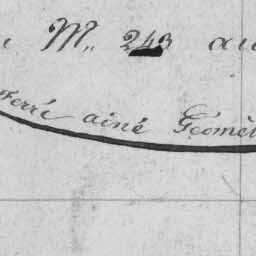 M.. 243 au
Ferré ainé Géomèt